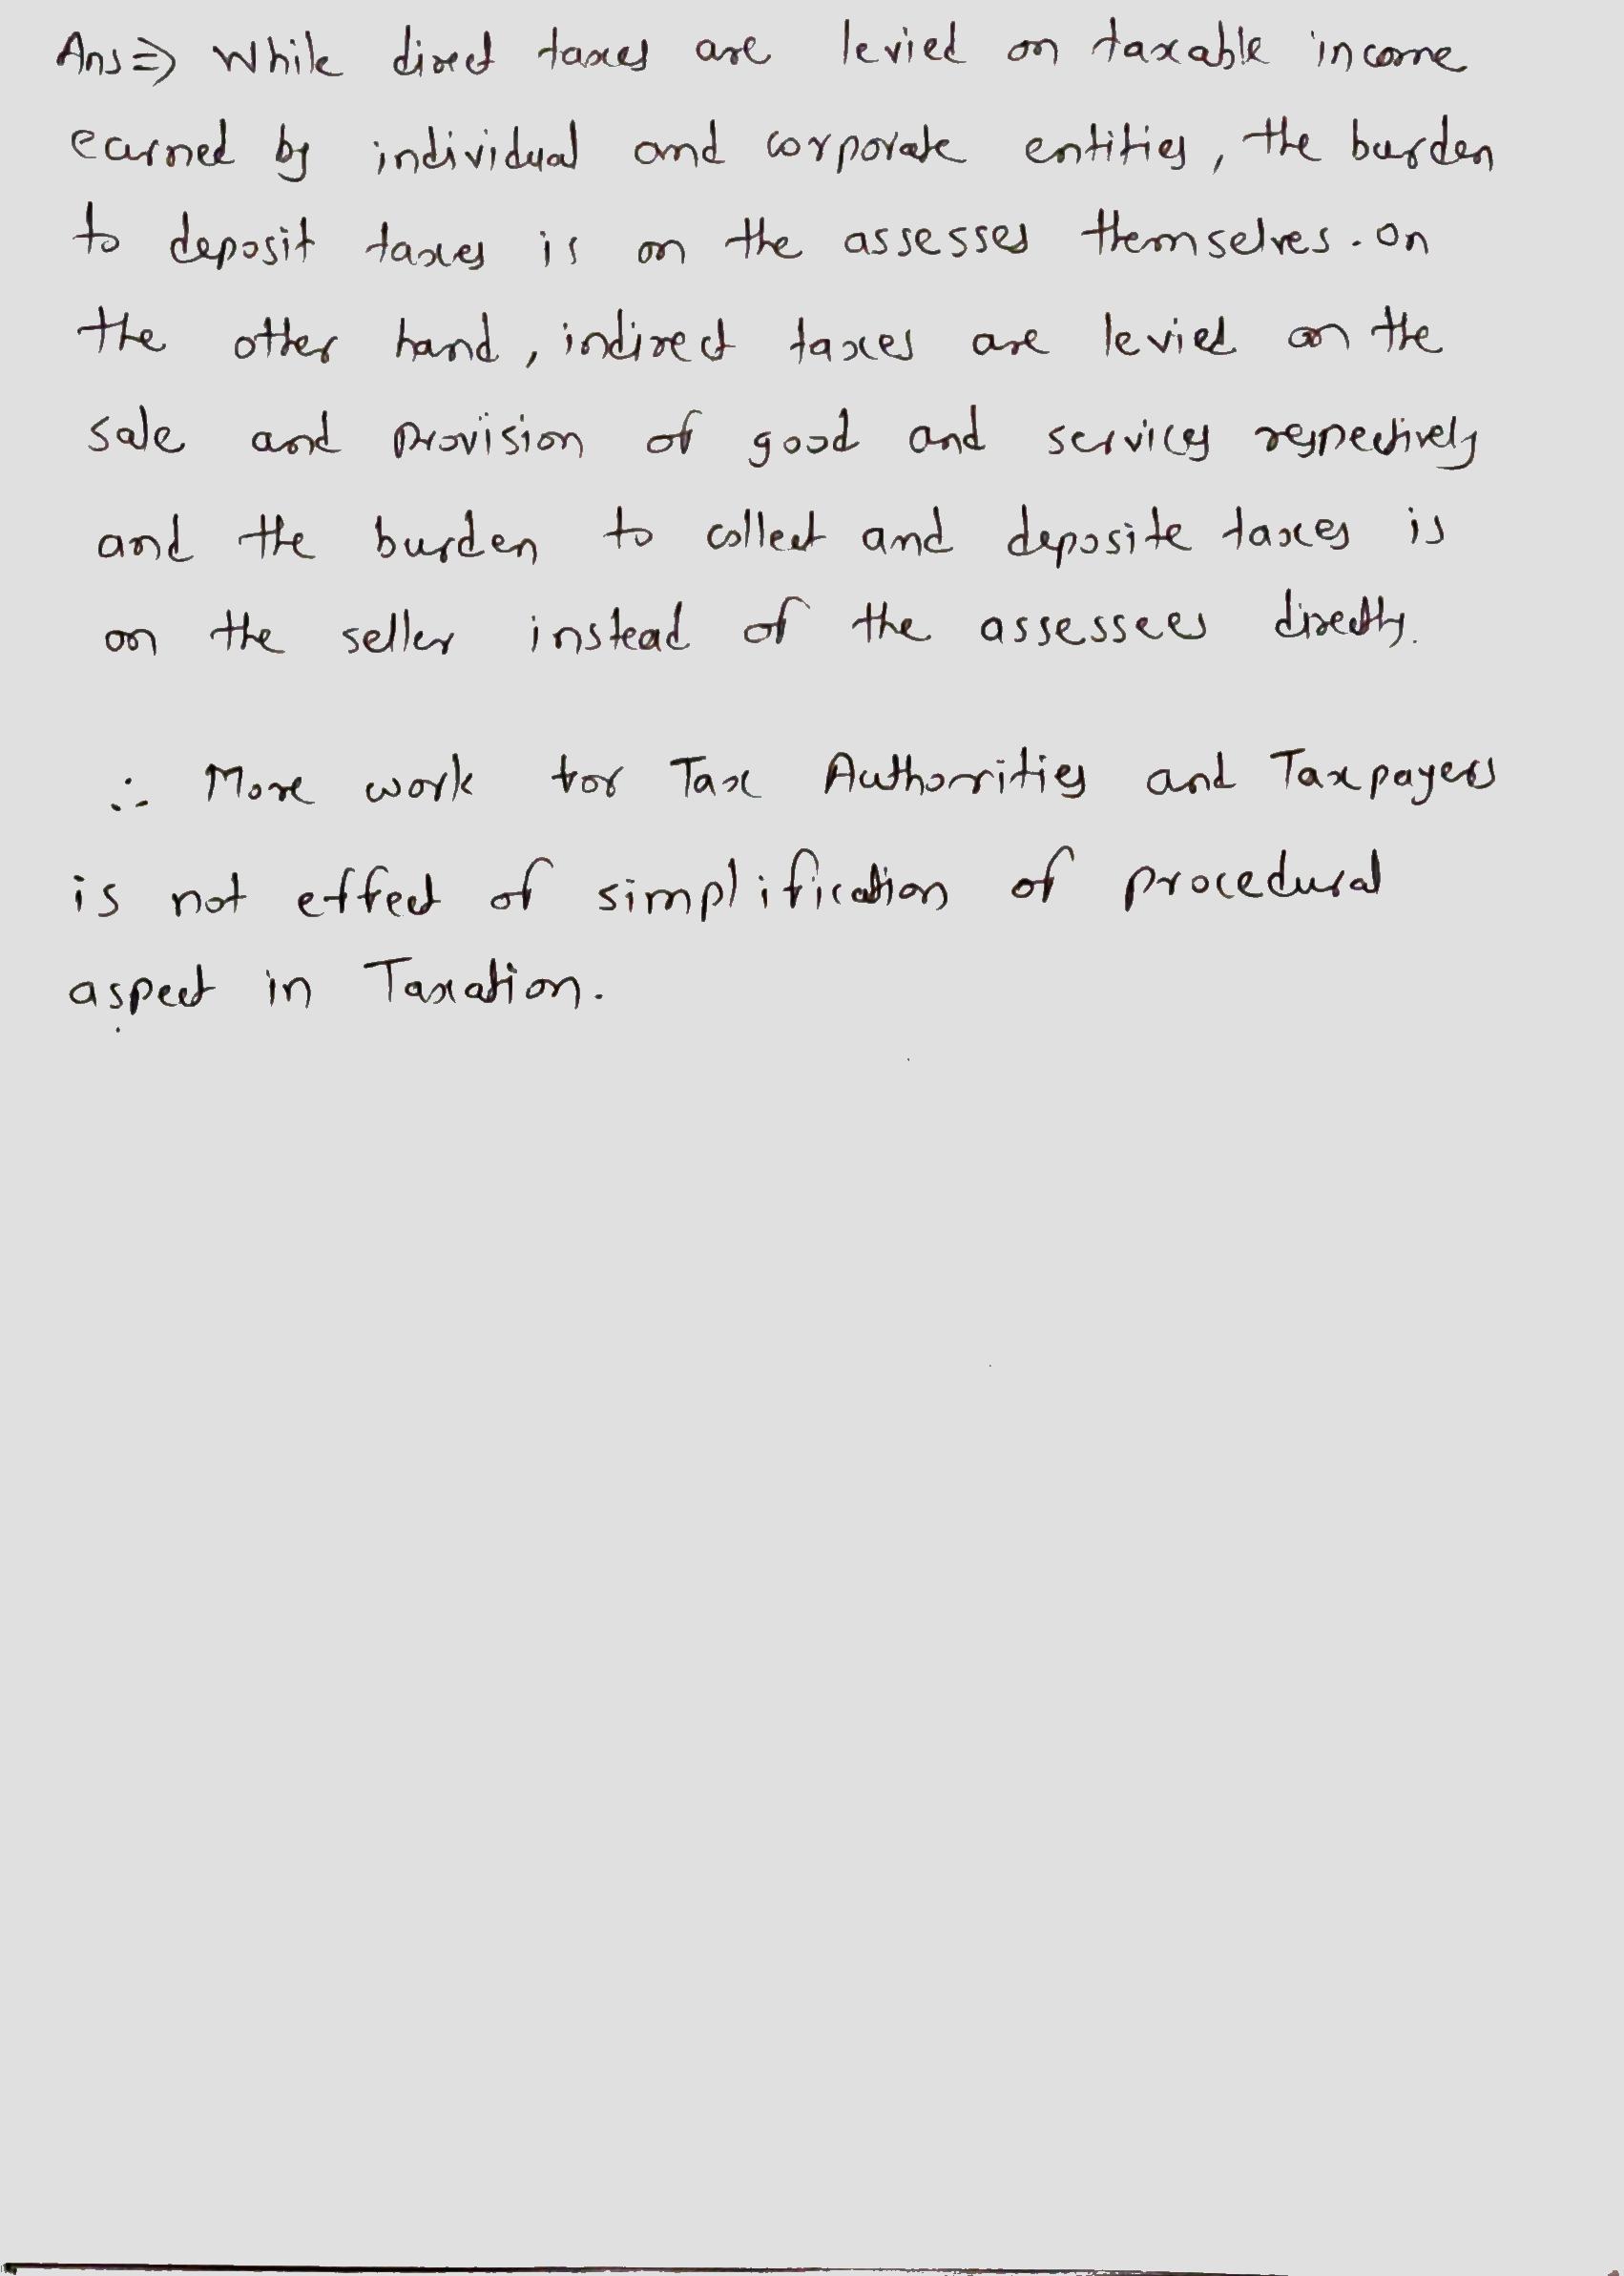 Ans⇒ While direct taxes are levied on taxable income
earned by individual and corporate entities, the burden
to deposit taxes is on the assesses themselves. On
the other hand, indirect taxes are levied on the
sale and provision of good and services respectively
and the burden to collect and deposite taxes is
on the seller instead of the assessees directly.
∴ More work for Tax Authorities and Taxpayers
is not effect of simplification of procedural
aspect in Taxation.